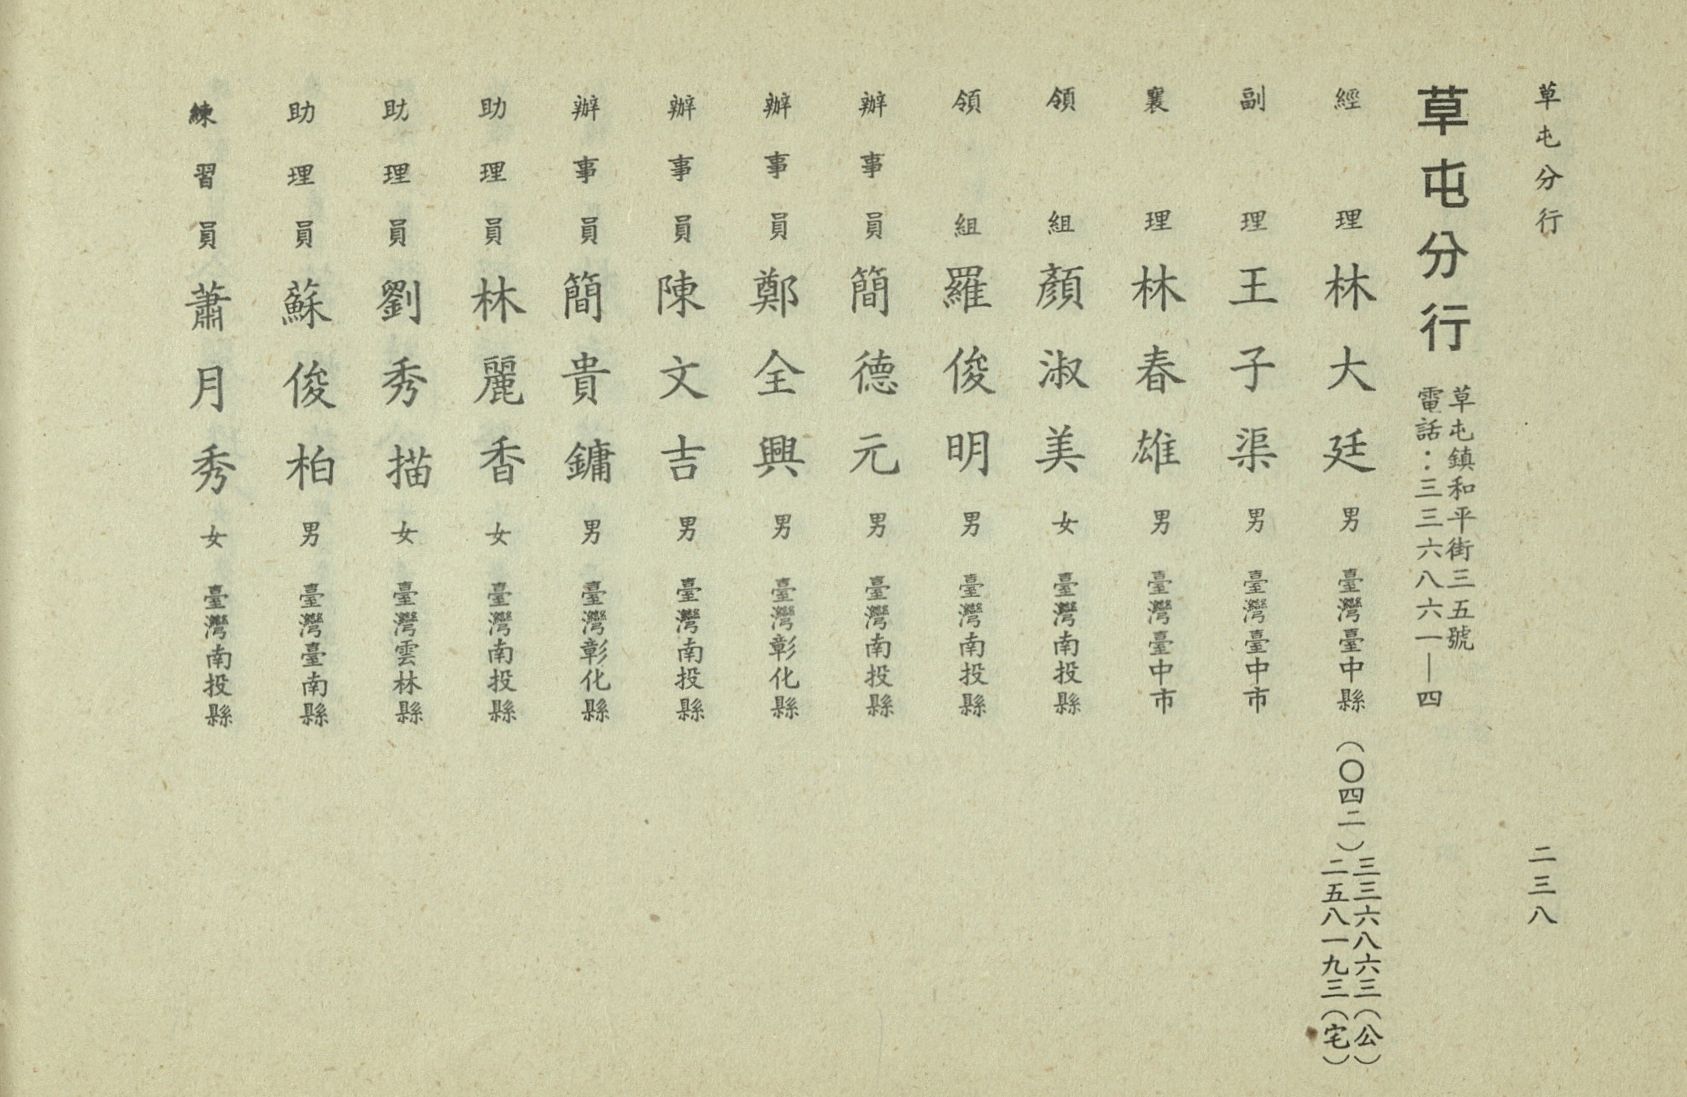 草屯分行
二三八
草屯分行
草屯鎮和平街三五號
電話：三三六八六一—四
經理 林大廷 男 臺灣臺中縣
三三六八六三（公）
（〇四二）二五八一九三（宅）
副理 王子渠 男 臺灣臺中市
襄理 林春雄 男 臺灣臺中市
領組 顏淑美 女 臺灣南投縣
領組 羅俊明 男 臺灣南投縣
辦事員 簡德元 男 臺灣南投縣
辦事員 鄭全興 男 臺灣彰化縣
辦事員 陳文吉 男 臺灣南投縣
辦事員 簡貴鏞 男 臺灣彰化縣
助理員 林麗香 女 臺灣南投縣
助理員 劉秀描 女 臺灣雲林縣
助理員 蘇俊柏 男 臺灣臺南縣
練習員 蕭月秀 女 臺灣南投縣